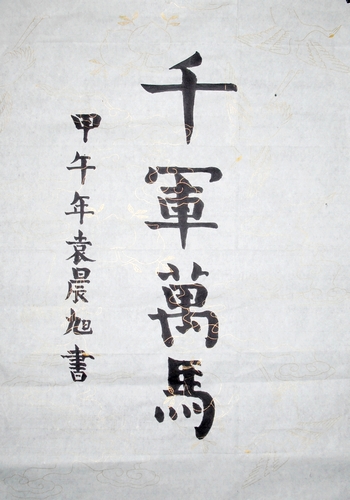 千軍萬馬
甲午年袁晨旭書